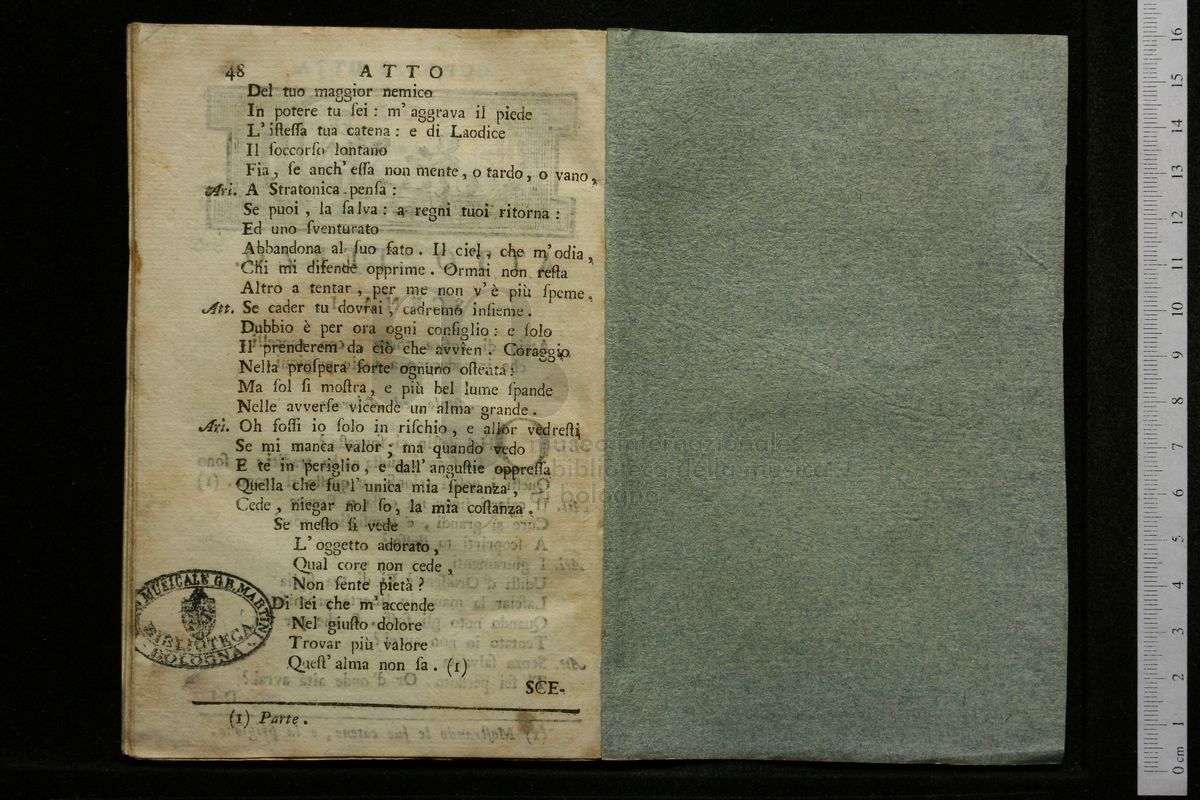 48 ATTO
Del tuo maggior nemico
In potere tu ſei : m' aggrava il piede
L' iſteſſa tua catena : e di Laodice
Il ſoccorſo lontano
Fia, ſe anch' eſſa non mente, o tardo, o vano,
Ari. A Stratonica penſa :
Se puoi, la ſalva : a regni tuoi ritorna :
Ed uno ſventurato
Abbandona al ſuo fato. Il ciel, che m' odia,
Chi mi difende opprime. Ormai non reſta
Altro a tentar, per me non v' è più ſpeme.
Att. Se cader tu dovrai, cadremo inſieme.
Dubbio è per ora ogni conſiglio : e ſolo
Il prenderem da ciò che avvien. Coraggio
Nella proſpera ſorte ognuno oſtenta :
Ma ſol ſi moſtra, e più bel lume ſpande
Nelle avverſe vicende un alma grande.
Ari. Oh foſſi io ſolo in riſchio, e allor vedreſti,
Se mi manca valor ; ma quando vedo
E te in periglio, e dall' anguſtie oppreſſa
Quella che fu l' unica mia ſperanza,
Cede, niegar nol ſo, la mia coſtanza.
Se meſto ſi vede
L' oggetto adorato,
Qual core non cede,
Non ſente pietà ?
Di lei che m' accende
Nel giuſto dolore
Trovar più valore
Queſt' alma non ſa. (1)
SCE-
(1) Parte.
MUSICALE G.B. MARTINI
BIBLIOTECA
BOLOGNA
museo internazionale
e biblioteca della musica
di bologna
16
15
14
13
12
11
10
9
8
7
6
5
4
3
2
1
0 cm